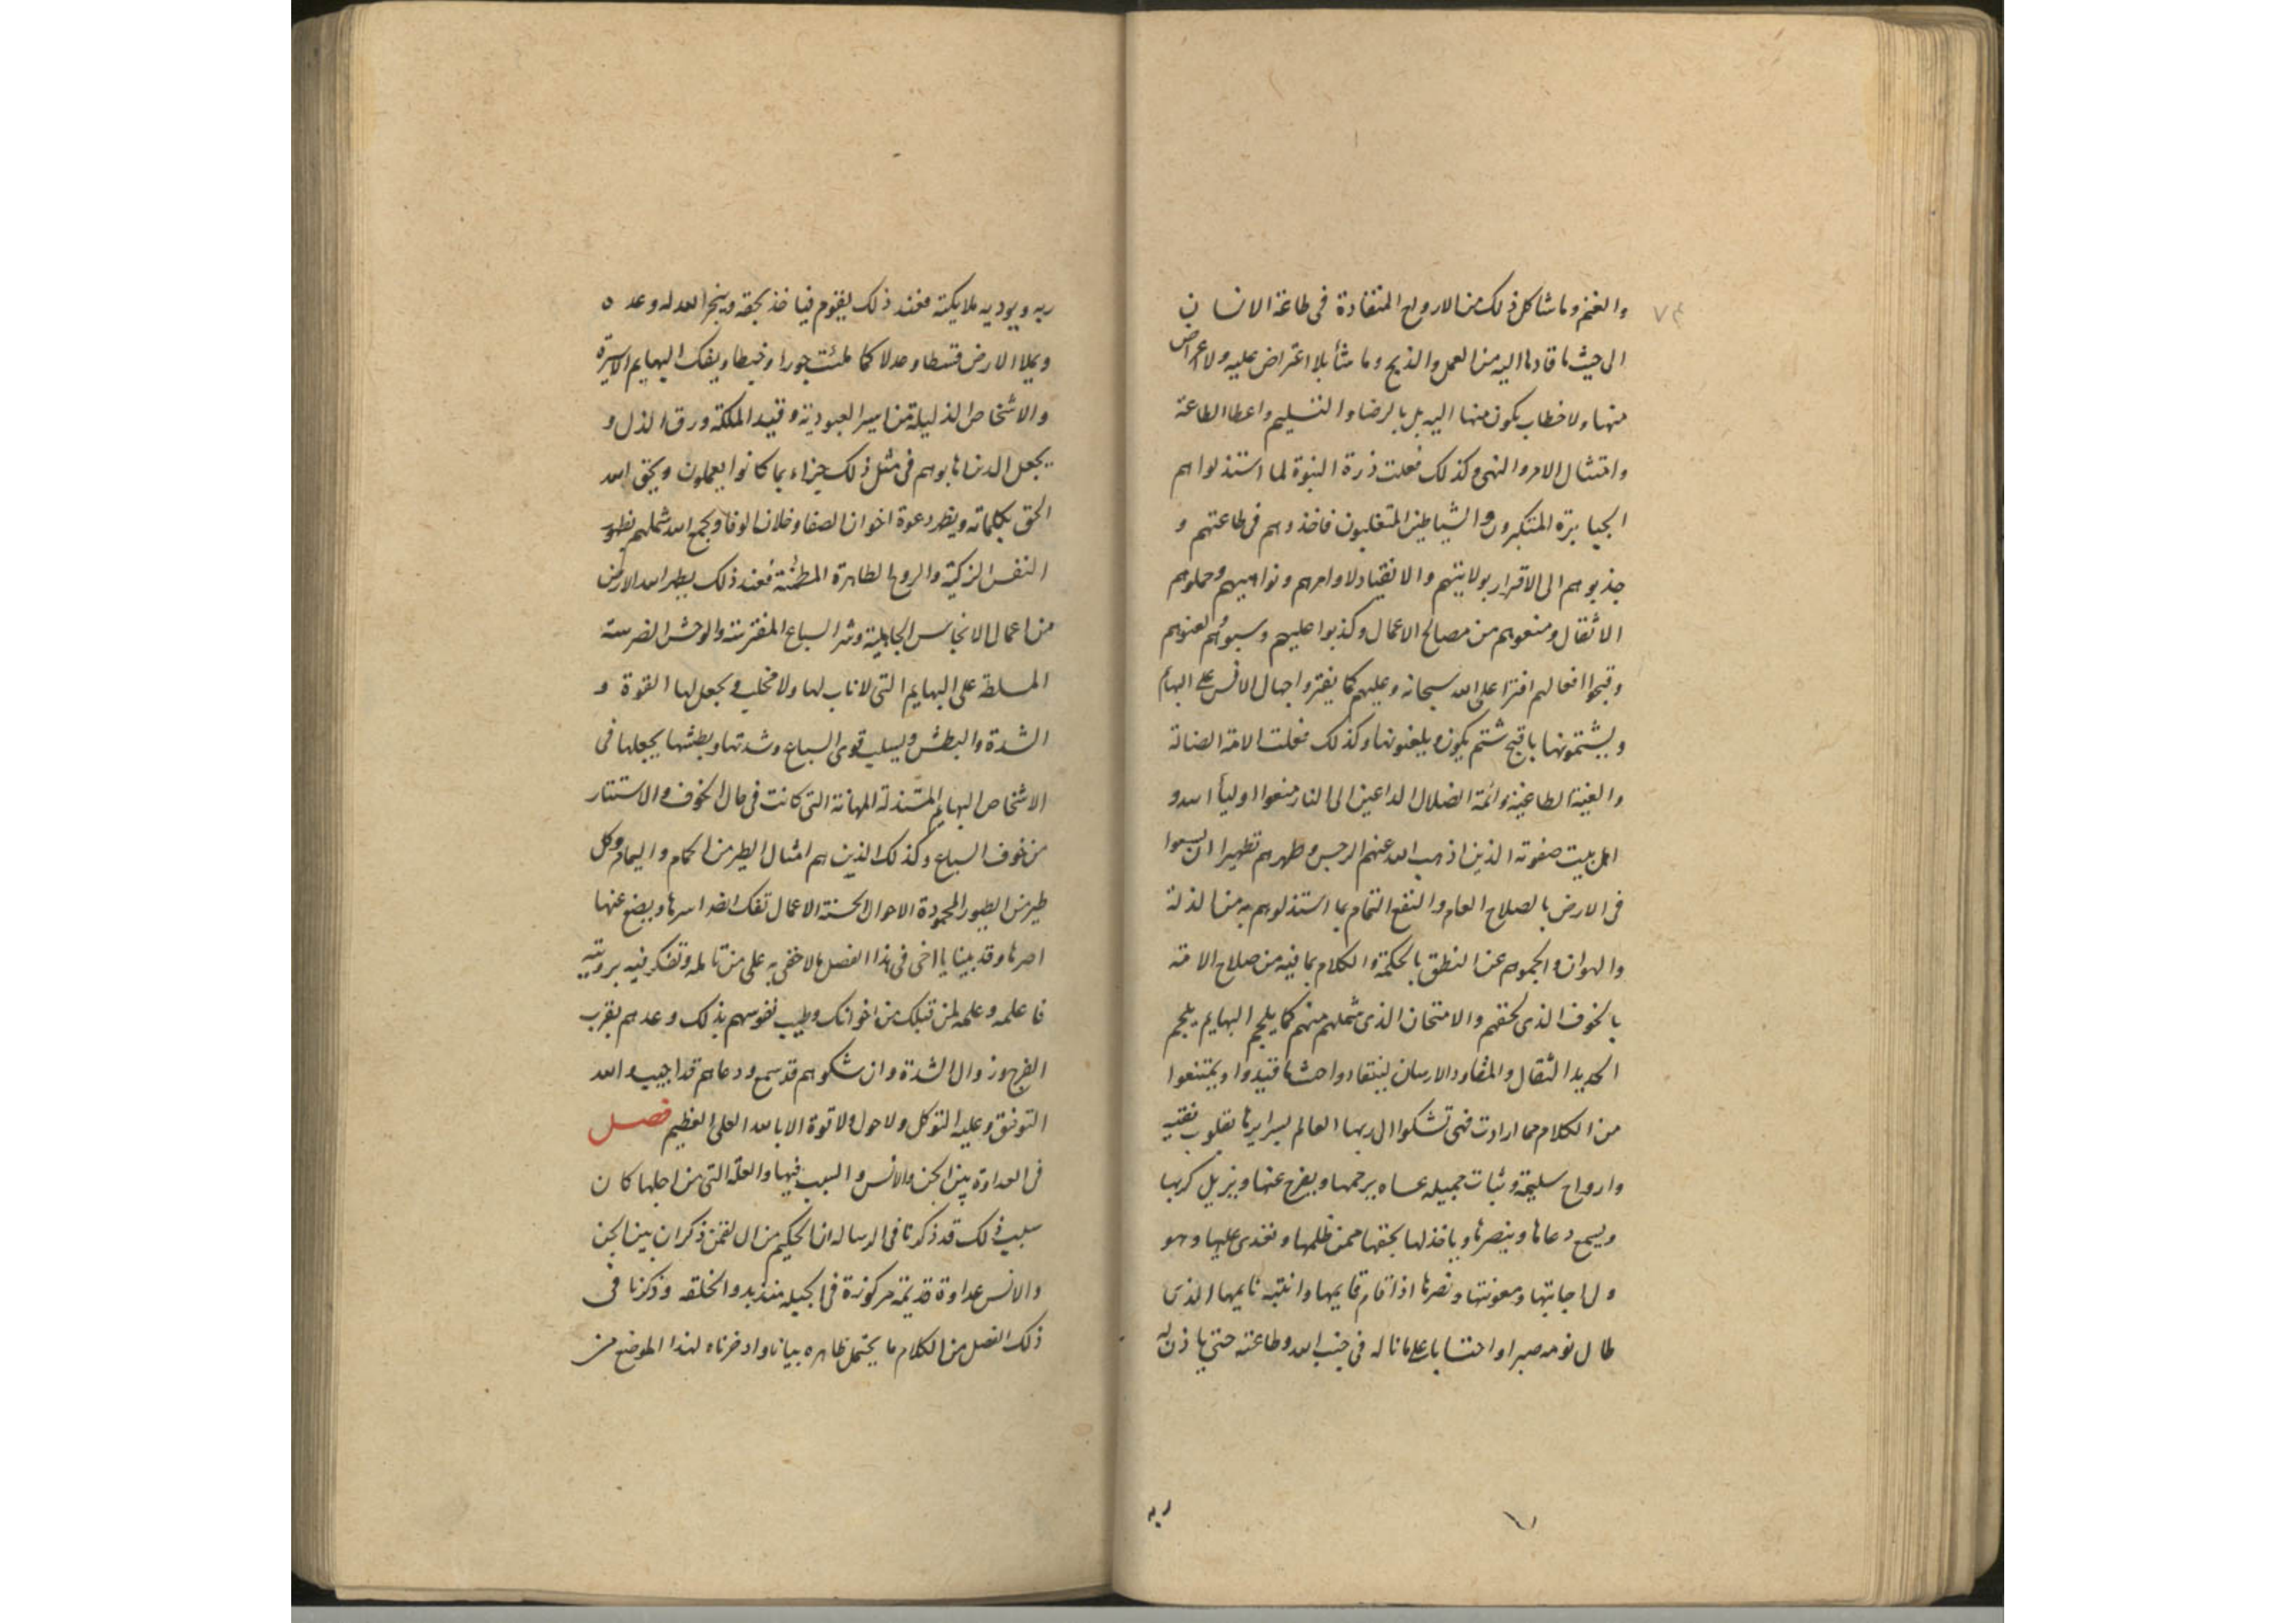 ٧٤
والغنم وما شاكل ذلك من الارواح المنقادة فى طاعة الانسان
الى حيث ما قادها اليه من العمل والذبح وما شأ بلا اعتراض عليه ولا اعراض
منها ولا خطاب يكون منها اليه بل بالرضا والتسليم واعطا الطاعة
وامتثال الامر والنهى وكذلك فعلت ذرة النبوة لما استذلواهم
الجبابرة المتكبرون والشياطين المتغلبون فاخذوهم فى طاعتهم و
جذبوهم الى الاقرار بولايتهم والانقياد لاوامرهم ونواهيهم وحملوهم
الاثقال ومنعوهم من مصالح الاعمال وكذبوا عليهم وسبوهم ولعنوهم
وقبحوا افعالهم افترا على الله سبحانه وعليهم كما يفتروا جهال الانس على البهائم
ويشتمونها باقبح شتم يكون ويلعنونها وكذلك فعلت الامة الضالة
والفية الطاغية وائمة الضلال الداعين الى النار منعوا اوليأ الله و
اهل بيت صفوته الذين اذهب الله عنهم الرجس وطهرهم تطهيرا ان يسعوا
فى الارض بالصلاح العام والنفع التمام بما استذلوهم به من الذلة
والهوان والجموهم عن النطق بالحكمة والكلام بما فيه من صلاح الامة
بالخوف الذى لحقهم والامتحان الذى شملهم منهم كما يلجم البهايم بلجم
الحديد الثقال والمقاود الارسان لينقادوا حيثما قيدوا ويمتنعوا
من الكلام مما ارادت فهى تشكوا الى ربها العالم بسرايرها بقلوب نقية
وارواح سليمة ونيات جميله عساه يرحمها ويفرج عنها ويزيل كربها
ويسمع دعاها وينصرها وياخذ لها بحقها ممن ظلمها وتعدى عليها وهو
ولى اجابتها ومعونتها ونصرها اذا قام قايمها وانتبه نايمها الذى
طال نومه صبرا واحتسابا على ما ناله فى جنب الله وطاعته حتى ياذن له
ربه
ربه ويوديه ملايكته فعند ذلك يقوم فياخذ بحقه وينجز الله له وعده
ويملا الارض قسطا وعدلا كما ملئت جورا وخبطا ويفك البهايم الاسيرة
والاشخاص الذليلة من اسر العبودية وقيد الملكة ورق الذل و
يجعل الذين عابوهم فى مثل ذلك جزاء بما كانوا يعملون ويحق الله
الحق بكلماته ويظهر دعوة اخوان الصفا وخلان الوفا ويجمع الله شملهم بظهور
النفس الزكية والروح الطاهرة المطمئنة فعند ذلك يطهر الله الارض
من اعمال الانجاس الجاهلية وشر السباع المفترسة والوحش الضرسة
المسلطة على البهايم التى لا ناب لها ولا مخلب ويجعل لها القوة و
الشدة والبطش ويسلب قوى السباع وشدتها وبطشها يجعلها فى
الاشخاص البهايم المستذلة المهانة التى كانت فى حال الخوف والاستتار
من خوف السباع وكذلك الذين هم امثال الطير من الحمام واليمام وكل
طير من الطيور المحمودة الاحوال الحسنة الاعمال تفك الله اسرها ويضع عنها
اصرها وقد بينا يا اخى فى هذا الفصل ما لا خفى به على من تامله وتفكر فيه برويته
فاعلمه وعلمه لمن قبلك من اخوانك وطيب نفوسهم بذلك وعدهم بقرب
الفرج وزوال الشدة وان شكواهم قد سمع ودعاهم قد اجيب والله
التوفيق وعليه التوكل ولا حول ولا قوة الا بالله العلى العظيم فصل
فى العداوة بين الجن والانس والسبب فيها والعلة التى من اجلها كان
سبب ذلك قد ذكرنا فى الرساله ان الحكيم من ال لقمن ذكر ان بين الجن
والانس عداوة قديمة مركوزة فى الجبله منذ بدو الخلقه وذكرنا فى
ذلك الفصل من الكلام ما يحتمل ظاهره بيانا وادخرناه لهذا الموضع من